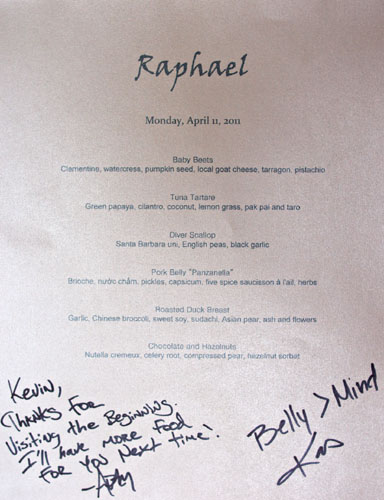 Raphael
Monday, April 11, 2011
Baby Beets
Clementine, watercress, pumpkin seed, local goat cheese, tarragon, pistachio
Tuna Tartare
Green papaya, cilantro, coconut, lemon grass, pak pai and taro
Diver Scallop
Santa Barbara uni, English peas, black garlic
Pork Belly "Panzanella"
Brioche, nước chấm, pickles, capsicum, five spice saucisson à l'ail, herbs
Roasted Duck Breast
Garlic, Chinese broccoli, sweet soy, sudachi, Asian pear, ash and flowers
Chocolate and Hazelnuts
Nutella cremeux, celery root, compressed pear, hazelnut sorbet
Kevin,
Thanks for
Visiting the Beginning.
I'll have more food
for you next time!
Belly > Mind